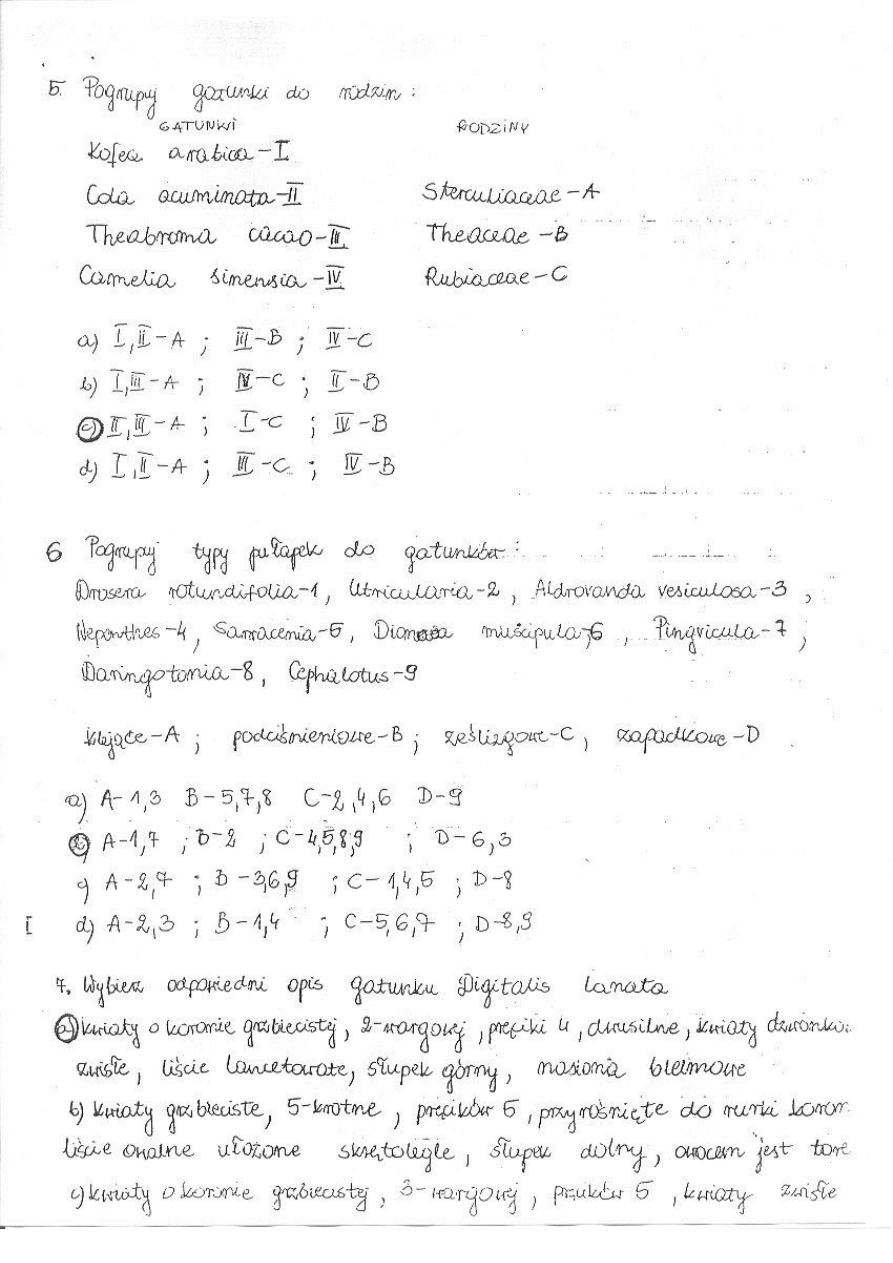 5. Pogrupuj gatunki do rodzin :
GATUNKI RODZINY
Kofea arabica - I
Cola acuminata - II Sterculiaceae - A
Theabroma cacao - III Theaceae - B
Camelia sinensia - IV Rubiaceae - C
a) I, II - A ; III - B ; IV - C
b) I, III - A ; IV - C ; II - B
c) II, III - A ; I - C ; IV - B
d) I, II - A ; III - C ; IV - B
6 Pogrupuj typy pułapek do gatunków :
Drosera rotundifolia - 1, Utricularia - 2, Aldrovanda vesiculosa - 3 ,
Nepenthes - 4, Sarracenia - 5, Dionaea muscipula - 6 , Pingvicula - 7 ,
Daringotonia - 8, Cephalotus - 9
klejące - A ; podciśnieniowe - B ; ześlizgowe - C , zapadkowe - D
a) A - 1,3 B - 5,7,8 C - 2,4,6 D - 9
b) A - 1,7 ; B - 2 ; C - 4,5,8,9 ; D - 6,3
c) A - 2,7 ; B - 3,6,9 ; C - 1,4,5 ; D - 8
[ d) A - 2,3 ; B - 1,4 ; C - 5,6,7 ; D - 8,9
7. Wybierz odpowiedni opis gatunku Digitalis lanata
a) kwiaty o koronie grzbiecistej, 2-wargowej, pręciki 4, dwusilne, kwiaty dzwonkow.
zwisłe, liście lancetowate, słupek górny, nasiona bielmowe
b) kwiaty grzbieciste, 5-krotne, pręcików 5, przyrośnięte do rurki koron
liście owalne ułożone skrętolegle, słupek dolny, owocem jest tore
c) kwiaty o koronie grzbiecistej, 3-wargowej, pręcików 5, kwiaty zwisłe